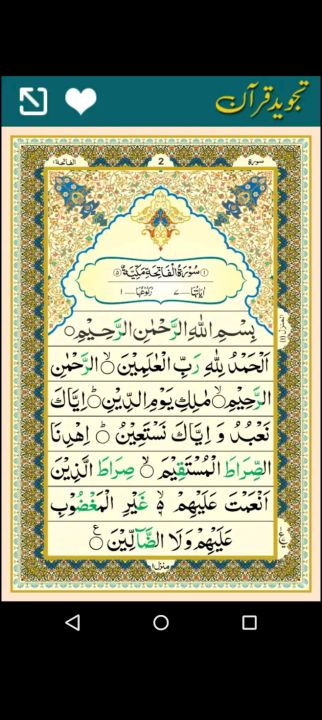 تجوید قرآن
سورة
2
الفاتحة ١
سُوْرَةُ الْفَاتِحَةِ مَكِّيَّةٌ
اٰیٰاتُہَا ٧ رُکُوْعُہَا ١
بِسْمِ اللّٰهِ الرَّحْمٰنِ الرَّحِيْمِ ○
اَلْحَمْدُ لِلّٰهِ رَبِّ الْعٰلَمِيْنَ ۙ○ الرَّحْمٰنِ
الرَّحِيْمِ ۙ○ مٰلِكِ يَوْمِ الدِّيْنِ ؕ○ اِيَّاكَ
نَعْبُدُ وَ اِيَّاكَ نَسْتَعِيْنُ ؕ○ اِهْدِنَا
الصِّرَاطَ الْمُسْتَقِيْمَ ۙ○ صِرَاطَ الَّذِيْنَ
اَنْعَمْتَ عَلَيْهِمْ ۙ۬ غَيْرِ الْمَغْضُوْبِ
عَلَيْهِمْ وَلَا الضَّآلِّيْنَ ○
منزل ١